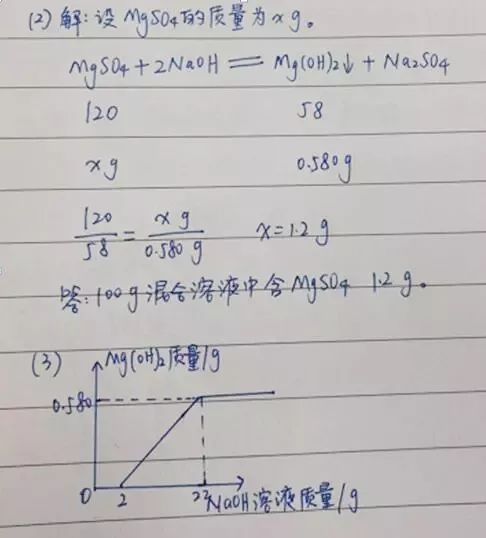 (2) 解：设 MgSO4的质量为 x g。
MgSO4 + 2NaOH ══ Mg(OH)2↓ + Na2SO4
120 58
x g 0.580 g
120/58 = x g/0.580 g x = 1.2 g
答：100 g 混合溶液中含 MgSO4 1.2 g。
(3) Mg(OH)2质量/g
0.580
0 2 22 NaOH溶液质量/g